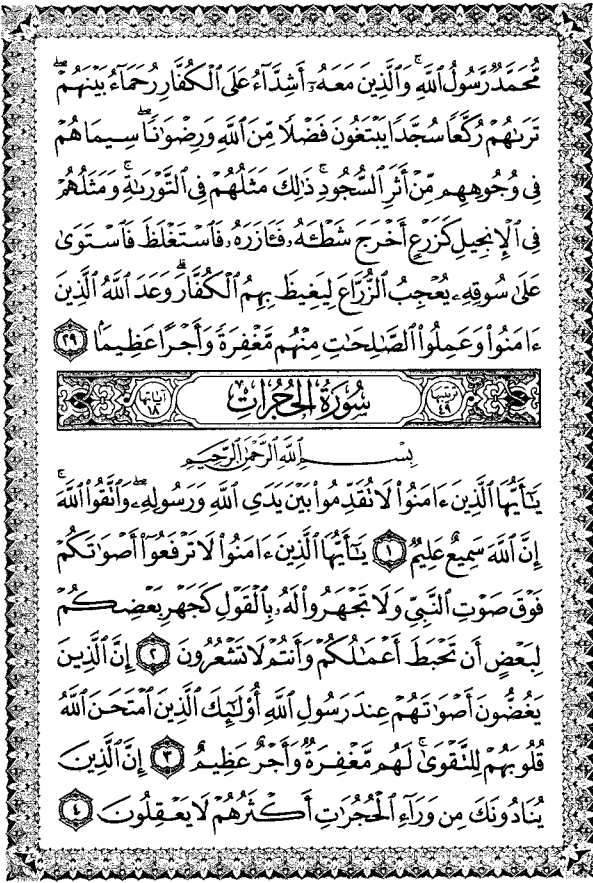 مُّحَمَّدٌ رَّسُولُ ٱللَّهِ ۚ وَٱلَّذِينَ مَعَهُۥٓ أَشِدَّآءُ عَلَى ٱلْكُفَّارِ رُحَمَآءُ بَيْنَهُمْ ۖ
تَرَىٰهُمْ رُكَّعًا سُجَّدًا يَبْتَغُونَ فَضْلًا مِّنَ ٱللَّهِ وَرِضْوَٰنًا ۖ سِيمَاهُمْ
فِى وُجُوهِهِم مِّنْ أَثَرِ ٱلسُّجُودِ ۚ ذَٰلِكَ مَثَلُهُمْ فِى ٱلتَّوْرَىٰةِ ۚ وَمَثَلُهُمْ
فِى ٱلْإِنجِيلِ كَزَرْعٍ أَخْرَجَ شَطْـَٔهُۥ فَـَٔازَرَهُۥ فَٱسْتَغْلَظَ فَٱسْتَوَىٰ
عَلَىٰ سُوقِهِۦ يُعْجِبُ ٱلزُّرَّاعَ لِيَغِيظَ بِهِمُ ٱلْكُفَّارَ ۗ وَعَدَ ٱللَّهُ ٱلَّذِينَ
ءَامَنُوا۟ وَعَمِلُوا۟ ٱلصَّٰلِحَٰتِ مِنْهُم مَّغْفِرَةً وَأَجْرًا عَظِيمًۢا ٢٩
ترتيبها ٤٩ سُورَةُ الحُجُرَاتِ آياتها ١٨
بِسْمِ ٱللَّهِ ٱلرَّحْمَٰنِ ٱلرَّحِيمِ
يَٰٓأَيُّهَا ٱلَّذِينَ ءَامَنُوا۟ لَا تُقَدِّمُوا۟ بَيْنَ يَدَىِ ٱللَّهِ وَرَسُولِهِۦ ۖ وَٱتَّقُوا۟ ٱللَّهَ ۚ
إِنَّ ٱللَّهَ سَمِيعٌ عَلِيمٌ ١ يَٰٓأَيُّهَا ٱلَّذِينَ ءَامَنُوا۟ لَا تَرْفَعُوٓا۟ أَصْوَٰتَكُمْ
فَوْقَ صَوْتِ ٱلنَّبِىِّ وَلَا تَجْهَرُوا۟ لَهُۥ بِٱلْقَوْلِ كَجَهْرِ بَعْضِكُمْ
لِبَعْضٍ أَن تَحْبَطَ أَعْمَٰلُكُمْ وَأَنتُمْ لَا تَشْعُرُونَ ٢ إِنَّ ٱلَّذِينَ
يَغُضُّونَ أَصْوَٰتَهُمْ عِندَ رَسُولِ ٱللَّهِ أُو۟لَٰٓئِكَ ٱلَّذِينَ ٱمْتَحَنَ ٱللَّهُ
قُلُوبَهُمْ لِلتَّقْوَىٰ ۚ لَهُم مَّغْفِرَةٌ وَأَجْرٌ عَظِيمٌ ٣ إِنَّ ٱلَّذِينَ
يُنَادُونَكَ مِن وَرَآءِ ٱلْحُجُرَٰتِ أَكْثَرُهُمْ لَا يَعْقِلُونَ ٤